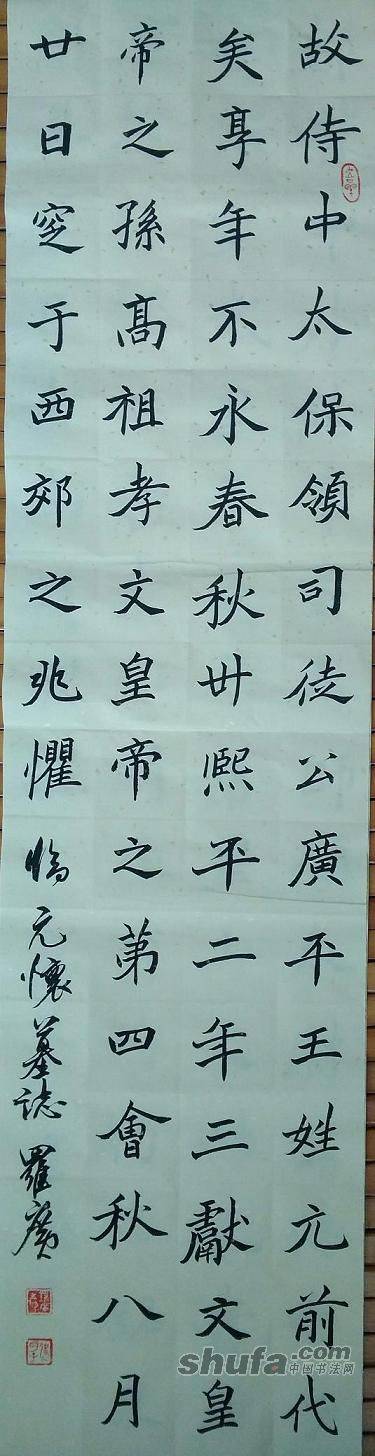 故侍中太保領司徒公廣平王姓元前代
矣享年不永春秋卅熙平二年三獻文皇
帝之孫高祖孝文皇帝之第四會秋八月
廿日窆于西郊之兆懼臨元懷墓誌 羅廣
shufa.com
中国书法网